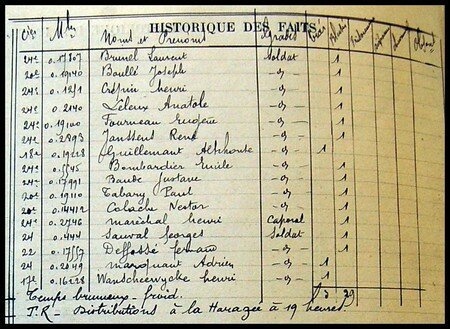 HISTORIQUE DES FAITS
Cies Mles Noms et Prénoms Grades Tués Blessés
24e 0.17807 Brunel Laurent Soldat 1
20e 0.19140 Boullé Joseph -d- 1
24e Crépin henri -d- 1
24e 0 2140 Leleux Anatole -d- 1
24e 0.19100 Fourneau Eugène -d- 1
24e 0.2893 Janssens René -d- 1
18e Guillemant Alphonse -d- 1
24e 0.5545 Bombardier Emile -d- 1
24e 0.17991 Baude Gustave -d- 1
20e 0.19110 Tabary Paul -d- 1
20e 0.14412 Calache Nestor -d- 1
24e 0.2746 maréchal henri Caporal 1
24 0.444 Sauval Georges Soldat 1
22 0.17557 Deffossé Fernand -d- 1
24 0.2049 marquant Adrien -d- 1
17e 0.16228 Wanscheerwycke henri -d- 1
Temps brumeux - froid. 3 29
T.R - Distributions à la Harazée à 19 heures.